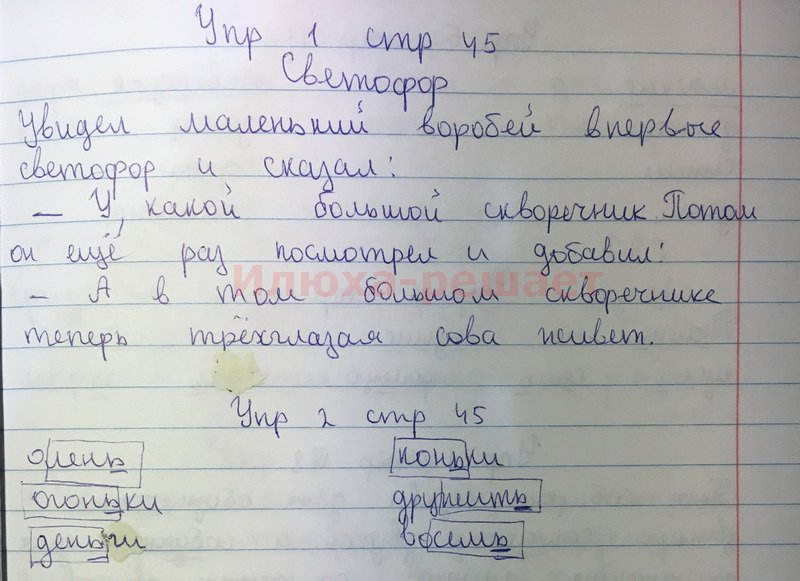 Упр 1 стр 45
Светофор
Увидел маленький воробей впервые
светофор и сказал:
– У, какой большой скворечник. Потом
он ещё раз посмотрел и добавил:
Илюха-решает
– А в том большом скворечнике
теперь трёхглазая сова живет.
Упр 2 стр 45
олень коньки
огоньки дружить
деньги восемь